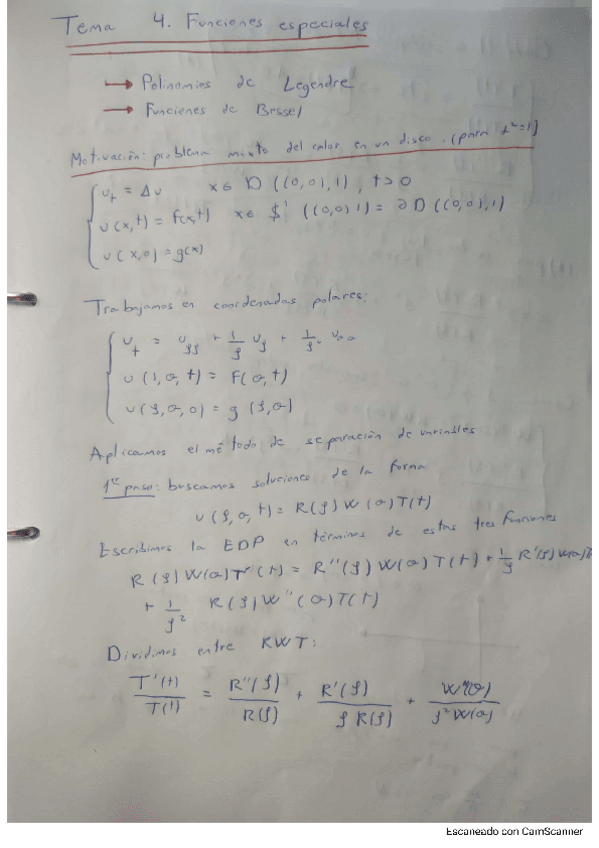 Tema 4. Funciones especiales
→ Polinomios de Legendre
→ Funciones de Bessel
Motivación: problema mixto del calor en un disco. (para k²=1)
u_t = Δu x ∈ D((0,0),1), t>0
u(x,t) = f(x,t) x ∈ $¹((0,0),1) = ∂D((0,0),1)
u(x,0) = g(x)
Trabajamos en coordenadas polares:
u_t = u_ρρ + 1/ρ u_ρ + 1/ρ² u_θθ
u(1,θ,t) = F(θ,t)
u(ρ,θ,0) = g(ρ,θ)
Aplicamos el método de separación de variables
1er paso: buscamos soluciones de la forma
u(ρ,θ,t) = R(ρ)W(θ)T(t)
Escribimos la EDP en términos de estas tres funciones
R(ρ)W(θ)T'(t) = R''(ρ)W(θ)T(t) + 1/ρ R'(ρ)W(θ)T
+ 1/ρ² R(ρ)W''(θ)T(t)
Dividimos entre RWT:
T'(t)/T(t) = R''(ρ)/R(ρ) + R'(ρ)/ρR(ρ) + W''(θ)/ρ²W(θ)
Escaneado con CamScanner